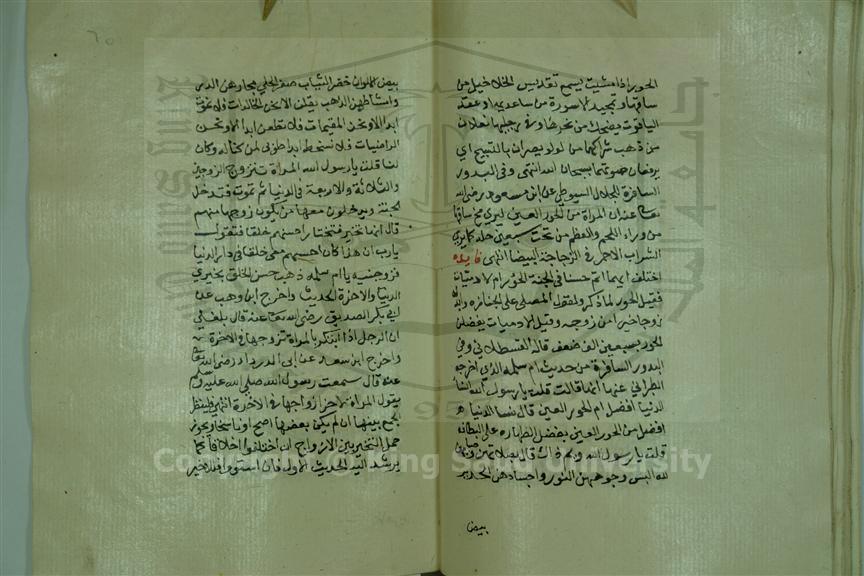 الحور اذا مشيت يسمع تقديس الخلاخيل من
ساقها وتمجيد الاسورة من ساعديها وعقد
الياقوت يضحك من نحرها وفي رجليها نعلان
من ذهب شراكهما من لولو يصران بالتسبيح اي
يرفعان صوتهما بسبحان الله انتهى وفي البدور
السافرة للجلال السيوطي عن ابن مسعود رضي الله
تعالى عنه ان المراة من الحور العين ليري مخ ساقها
من وراء اللحم والعظم من تحت سبعين حلة كما يري
الشراب الاحمر في الزجاجة البيضا انتهى فايده
اختلف ايهما اتم حسنا في الجنة الحور ام الادميات
فقيل الحور لما ذكر ولقول المصلى على الجنازه وابدله
زوجا خيرا من زوجه وقيل الادميات يفضلن
الحور بسبعين الف ضعف قاله القسطلاني وفي
البدور السافرة من حديث ام سلمه الذي اخرجه
الطبراني عنها انها قالت قلت يا رسول الله انسا
الدنيا افضل ام الحور العين قال نسا الدنيا
افضل من الحور العين بفضل الظهاره على البطانه
قلت يا رسول الله وبم ذاك قال بصلاتهن وصيامهن
لله البس وجوههن النور واجسادهن الحرير
بيض
بيض الالوان خضر الثياب صفر الحلي مجامرهن الدر
وامشاطهن الذهب يقلن الا نحن الخالدات فلا نموت
ابدا الا ونحن المقيمات فلا نظعن ابدا الا ونحن
الراضيات فلا نسخط ابدا طوبى لمن كنا له وكان
لنا قلت يا رسول الله المراة تتزوج الزوجين
والثلاثة والاربعة في الدنيا ثم تموت فتدخل
الجنة ويدخلون معها من يكون زوجها منهم
قال انها تخير فتختار احسنهم خلقا فتقول
يا رب ان هذا كان احسنهم معي خلقا في دار الدنيا
فزوجنيه يا ام سلمه ذهب حسن الخلق بخيري
الدنيا والاخرة الحديث واخرج ابن وهب عن
ابي بكر الصديق رضي الله تعالى عنه قال بلغني
ان الرجل اذا ابتكر بالمراة تزوجها في الاخرة
واخرج ابن سعد عن ابى الدرداء رضي الله تعالى
عنه قال سمعت رسول الله صلى الله عليه وسلم
يقول المراة لاخر ازواجها في الاخرة انتهى فلينظر
الجمع بينها ان لم يكن بعضها اصح او ناسخا ويجوز
حمل التخيير بين الازواج ان اختلفوا اخلاقا كما
يرشد اليه الحديث الاول فان استووا فللاخير
Copyright © King Saud University
1957